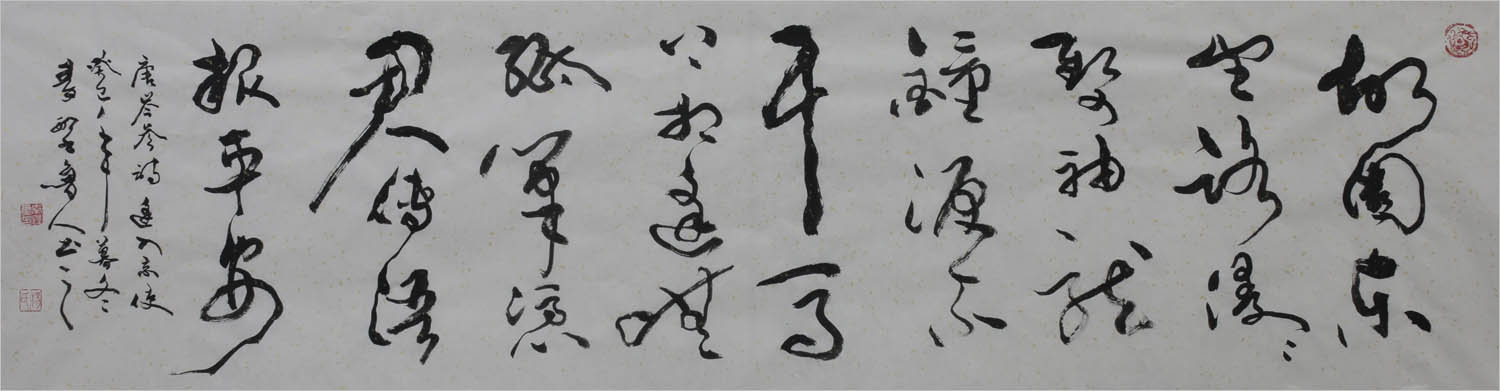 故園東
望路漫〻
雙袖龍
鐘淚不
干馬
上相逢無
紙筆憑
君傳語
報平安
唐岑參詩 逢入京使
癸巳年暮冬
魯人书之